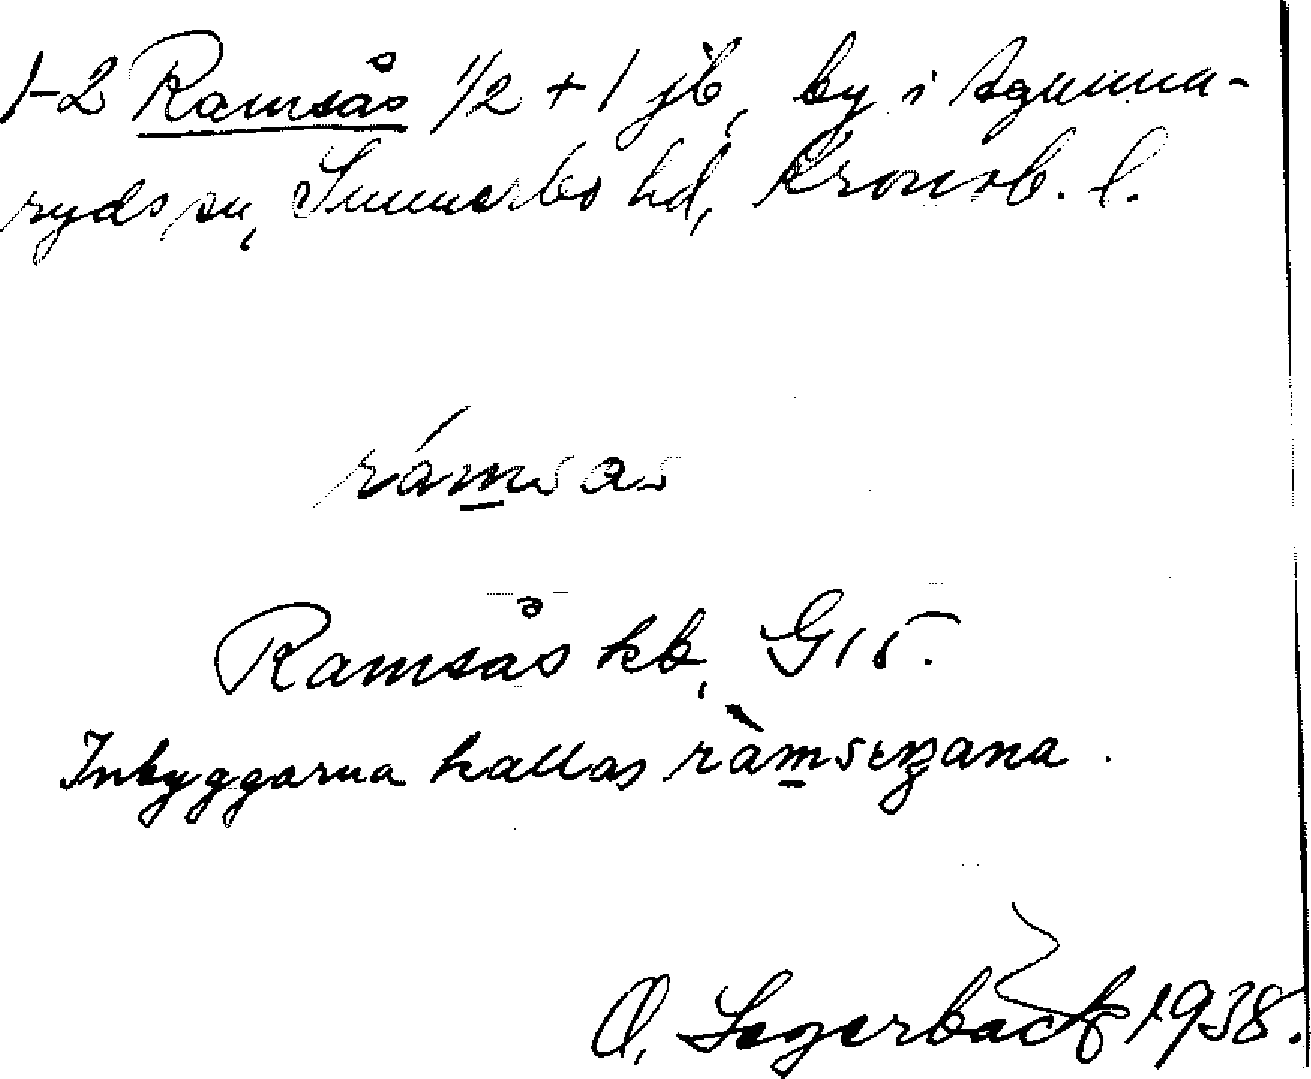 1-2 Ramsås 1/2 + 1 jb, by i Agunna-
ryds sn, Sunnerbo hd, Kronob. l.
rámsas
Ramsås kb, G15.
Inbyggarna kallas ràmseŋana.
O. Segerbäck 1938.